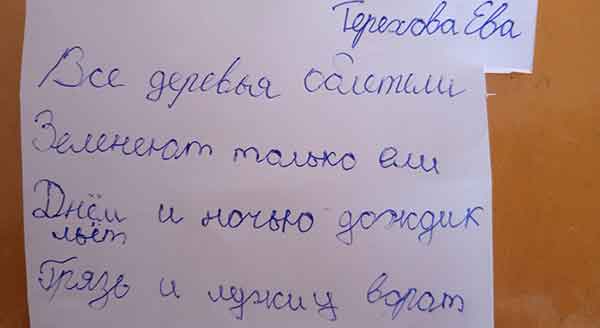 Терехова Ева
Все деревья облетели
Зеленеют только ели
Днём и ночью дождик
льёт
Грязь и лужи у ворот